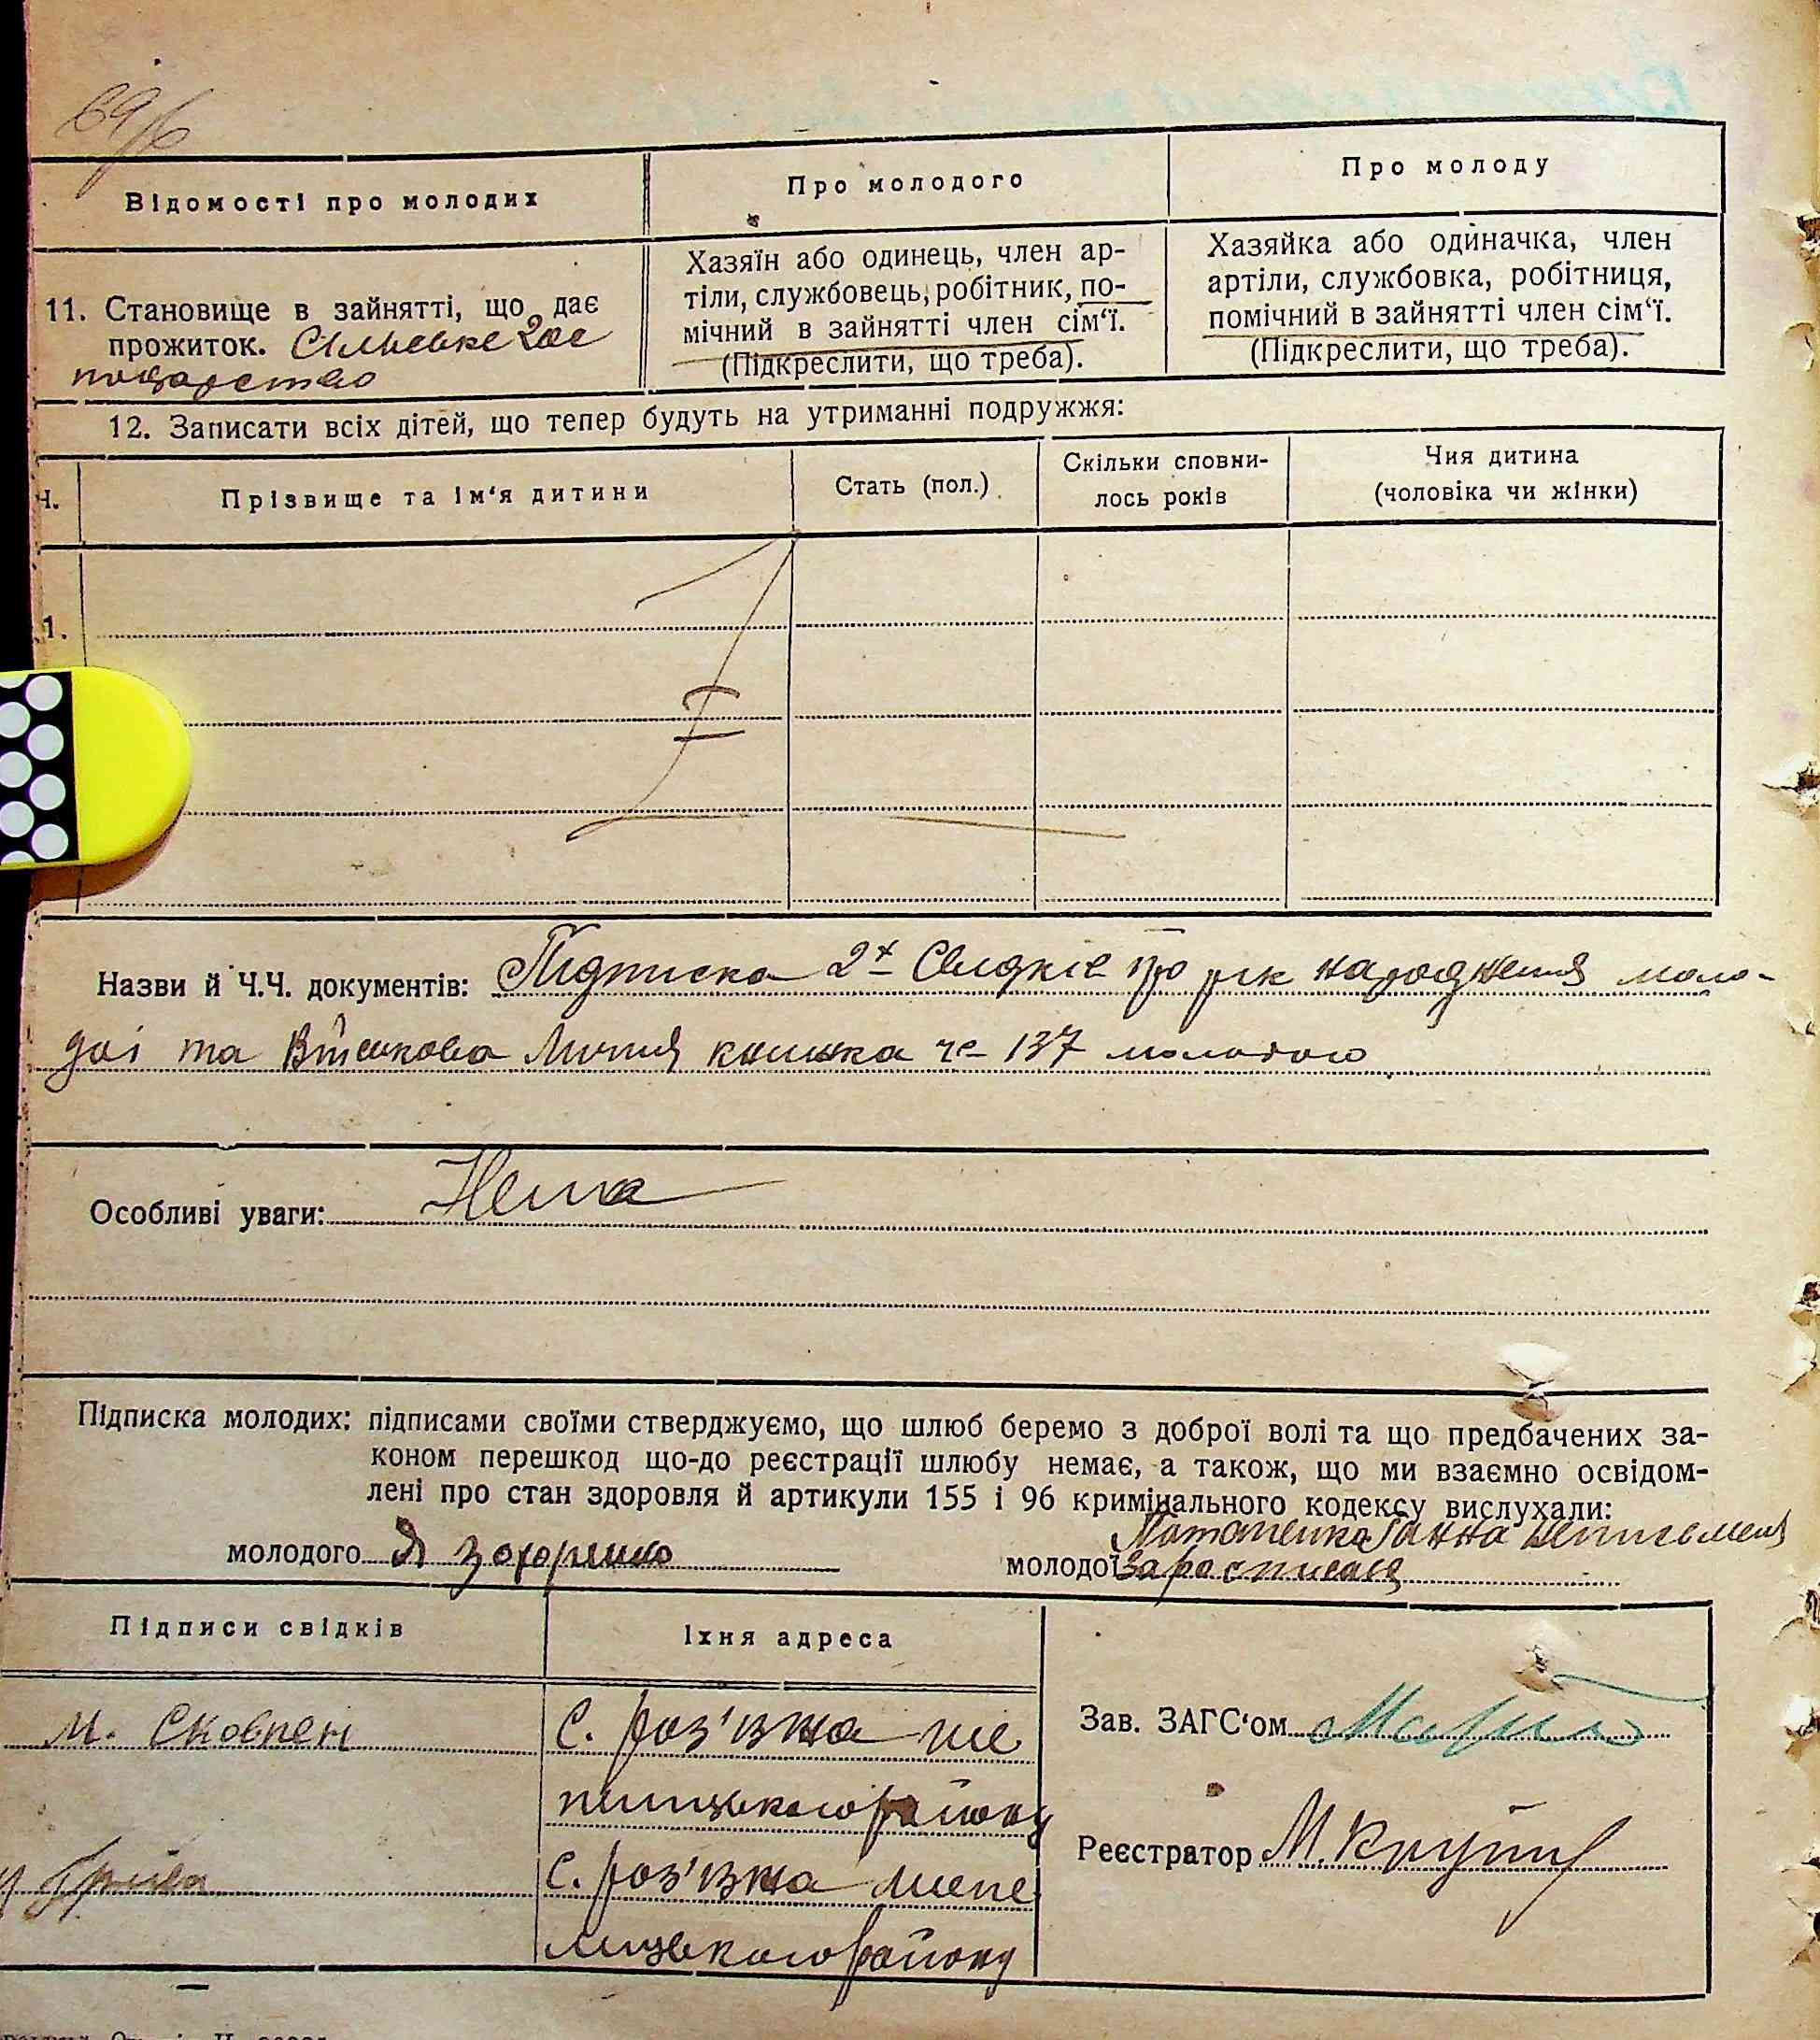 Відомості про молодих
Про молодого
Про молоду
11. Становище в зайнятті, що дає
прожиток. Сільське гос
подарство
Хазяїн або одинець, член ар-
тіли, службовець, робітник, по-
мічний в зайнятті член сім‘ї.
(Підкреслити, що треба).
Хазяйка або одиначка, член
артіли, службовка, робітниця,
помічний в зайнятті член сім‘ї.
(Підкреслити, що треба).
12. Записати всіх дітей, що тепер будуть на утриманні подружжя:
Ч.
Прізвище та ім‘я дитини
Стать (пол.)
Скільки сповни-
лось років
Чия дитина
(чоловіка чи жінки)
1.
Назви й Ч.Ч. документів: Підписка 2х свидків про рік народження моло-
дої та Військова книжка 137 молодого
Особливі уваги: Нема
Підписка молодих: підписами своїми стверджуємо, що шлюб беремо з доброї волі та що предбачених за-
коном перешкод що-до реєстрації шлюбу немає, а також, що ми взаємно освідом-
лені про стан здоровля й артикули 155 і 96 кримінального кодексу вислухали:
молодого Я Захоренко
Ганна
молодої
Підписи свідків
Їхня адреса
М. Сковпен
С. Роз'їзжа ше
пелицького району
С. Роз'їзжа шепе
лицького району
Зав. ЗАГС‘ом
Реєстратор М.